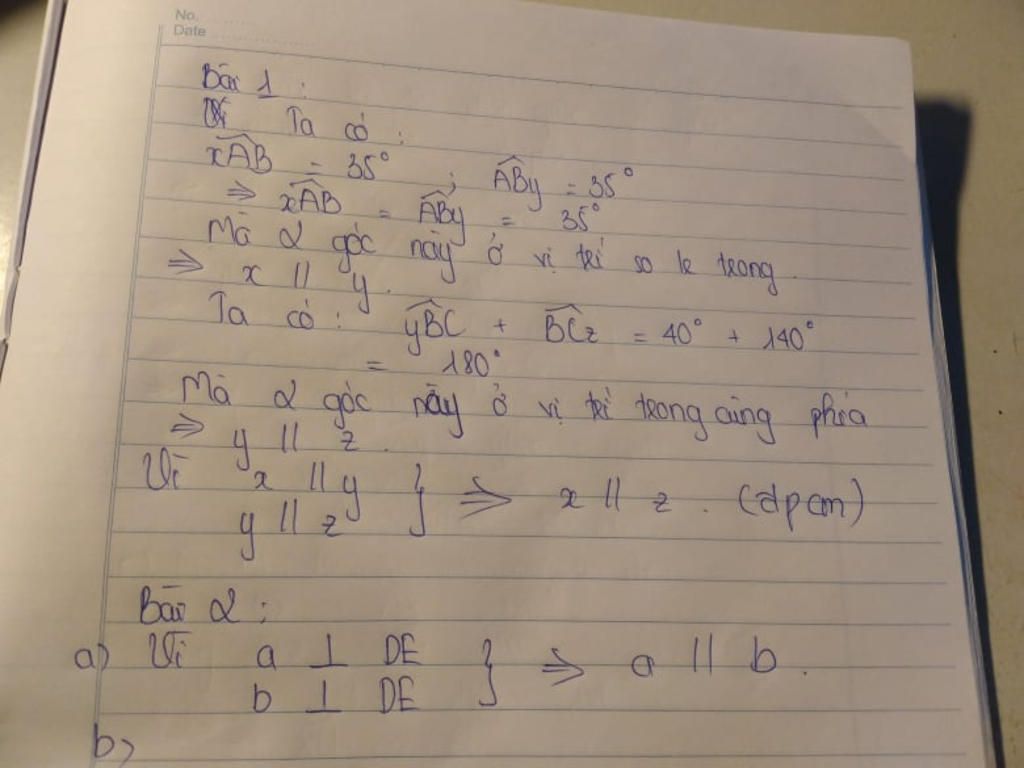 No.
Date
Bài 1 :
Vì Ta có :
xÂB = 35° ; ABy = 35°
=> xAB = ABy = 35°
Mà 2 góc này ở vị trí so le trong.
=> x // y.
Ta có : yBC + BCz = 40° + 140°
= 180°
Mà 2 góc này ở vị trí trong cùng phía
=> y // z.
Vì x // y } => x // z . (đpcm)
y // z
Bài 2 :
a) Vì a ⊥ DE } => a // b .
b ⊥ DE
b)